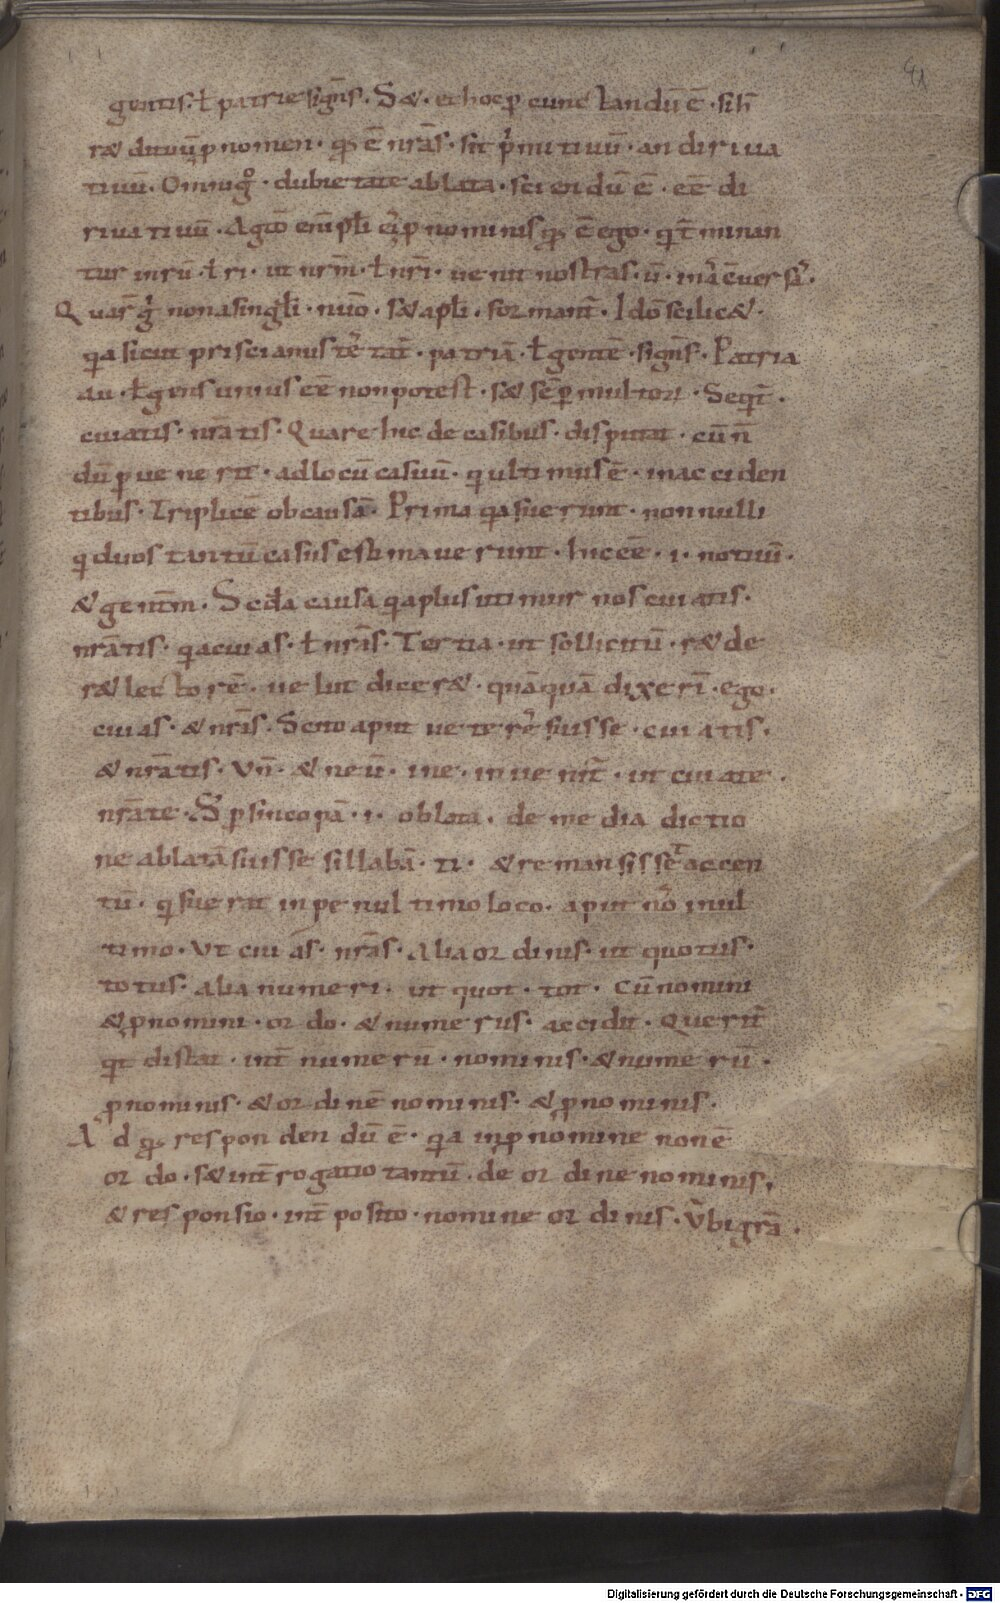 41
gentis · ł patrie signīs · S& · et hoc p̄ cunctandū ē · si h̄
r& dictū pnomen · qđ ē nrās · sit p̄mitiuū · an diriua
tiuū · Omni gº · dubietate ablata · sciendū ē · eē di
riuatiuū · A gtō enī płi ei p nominis qđ ē ego · qđ t̄minan
tur in rū · ł ri · ut nrm̄ · ł nrī · uenit nostras · ū · in a ē uersa ·
Quar g nona singłi · nūo · s& a płi · formant̄ · Idō scilic& ·
qa sicut priscianus tē tat̄ · patriā · ł gentē · signīs · Patria
au · ł gens unius eē non potest · s& sēp multorꝝ · Seqt̄ ·
cuiatis · nrātis · Quare hic de casibus · disputat · cū n̄
dū puenerit · ad locū casuū · qi ultimus ē · in acciden
tibus · Triplicē ob causā · Prima qa fuerunt · nonnulli
qi duos tantū casus estimauerunt · hic eē · i · notiuū ·
& genitm̄ · Scđa causa qa plus utimur nos cuiatis ·
nrātis · qa cuias · ł nrās · Tertia · ut sollicitū · r&de
r& lectorē · uelut dicer& · quāquā dixerī · ego ·
cuias · & nrās · Scito aput ueterē fuisse · cuiatis ·
& nrātis · Vn̄ · & neū · ine · inuenit̄ · ut cuiate ·
nrāte · S p sincopā · i · oblata · de media dictio
ne ablatā fuisse sillabā · ti · & remansisse accen
tū · qi fuerat in penultimo loco · aput nō in ul
timo · Vt cuiás · nrās · Alia ordinis · ut quotus ·
totus · alia numeri · ut quot · tot · Cū nomini
& pnomini · ordo · & numerus · accidit · Querit̄
qđ distat · int̄ numerū · nominis · & numerū ·
pnominis · & ordinē nominis · & pnominis ·
Ad qđ respondendū ē · qia in pnomine non ē
ordo · s& int̄rogatio tantū · de ordine nominis ·
& responsio · int̄posito · nomine ordinis · Vbi grā ·
Digitalisierung gefördert durch die Deutsche Forschungsgemeinschaft - DFG